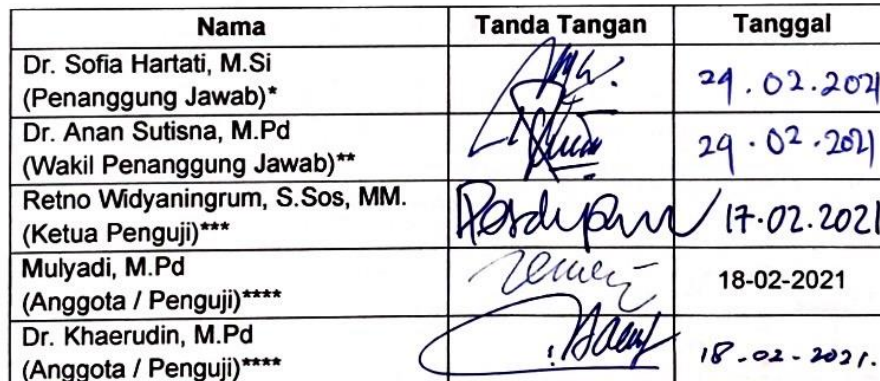 Nama Tanda Tangan Tanggal
Dr. Sofia Hartati, M.Si
(Penanggung Jawab)* 29.02.2021
Dr. Anan Sutisna, M.Pd
(Wakil Penanggung Jawab)** 29.02.2021
Retno Widyaningrum, S.Sos, MM.
(Ketua Penguji)*** 17.02.2021
Mulyadi, M.Pd
(Anggota / Penguji)**** 18-02-2021
Dr. Khaerudin, M.Pd
(Anggota / Penguji)**** 18-02-2021.